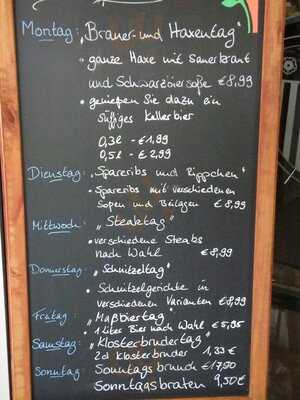 Montag: „Brauer- und Haxentag"
• ganze Haxe mit Sauerkraut
und Schwarzbiersoße € 8,99
• genießen Sie dazu ein
süffiges Kellerbier
0,3l - € 1,99
0,5l - € 2,99
Dienstag: „Spareribs und Rippchen"
• Spareribs mit verschiedenen
Soßen und Beilagen € 8,99
Mittwoch: „Steaktag"
• verschiedene Steaks
nach Wahl € 8,99
Donnerstag: „Schnitzeltag"
• Schnitzelgerichte in
verschiedenen Varianten € 8,99
Freitag: „Maßbiertag"
• 1 Liter Bier nach Wahl € 5,95
Samstag: „Klosterbrudertag"
2cl Klosterbruder 1,33 €
Sonntag: Sonntagsbrunch € 17,90
Sonntagsbraten 9,50 €